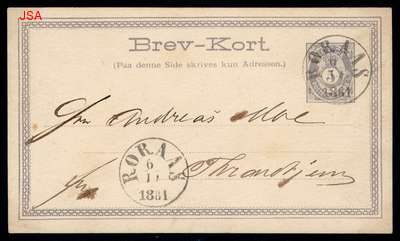 JSA
Brev-Kort.
(Paa denne Side skrives kun Adressen.)
RORAAS
6
1881
Andreas Moe
RORAAS
6
11
1881
Throndhjem